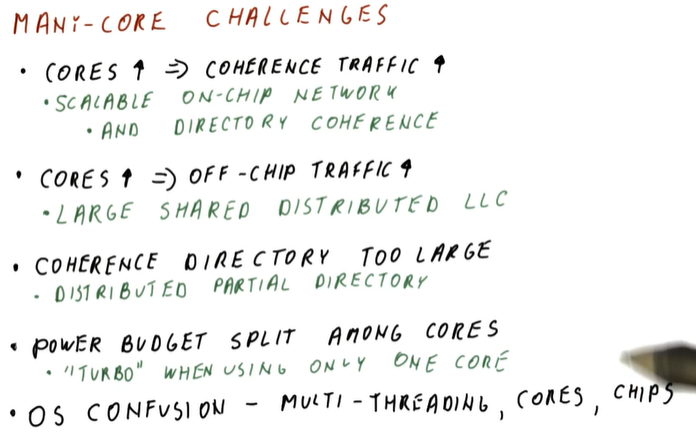 MANY-CORE CHALLENGES
• CORES ↑ => COHERENCE TRAFFIC ↑
• SCALABLE ON-CHIP NETWORK
• AND DIRECTORY COHERENCE
• CORES ↑ => OFF-CHIP TRAFFIC ↑
• LARGE SHARED DISTRIBUTED LLC
• COHERENCE DIRECTORY TOO LARGE
• DISTRIBUTED PARTIAL DIRECTORY
• POWER BUDGET SPLIT AMONG CORES
• "TURBO" WHEN USING ONLY ONE CORE
• OS CONFUSION - MULTI-THREADING, CORES, CHIPS